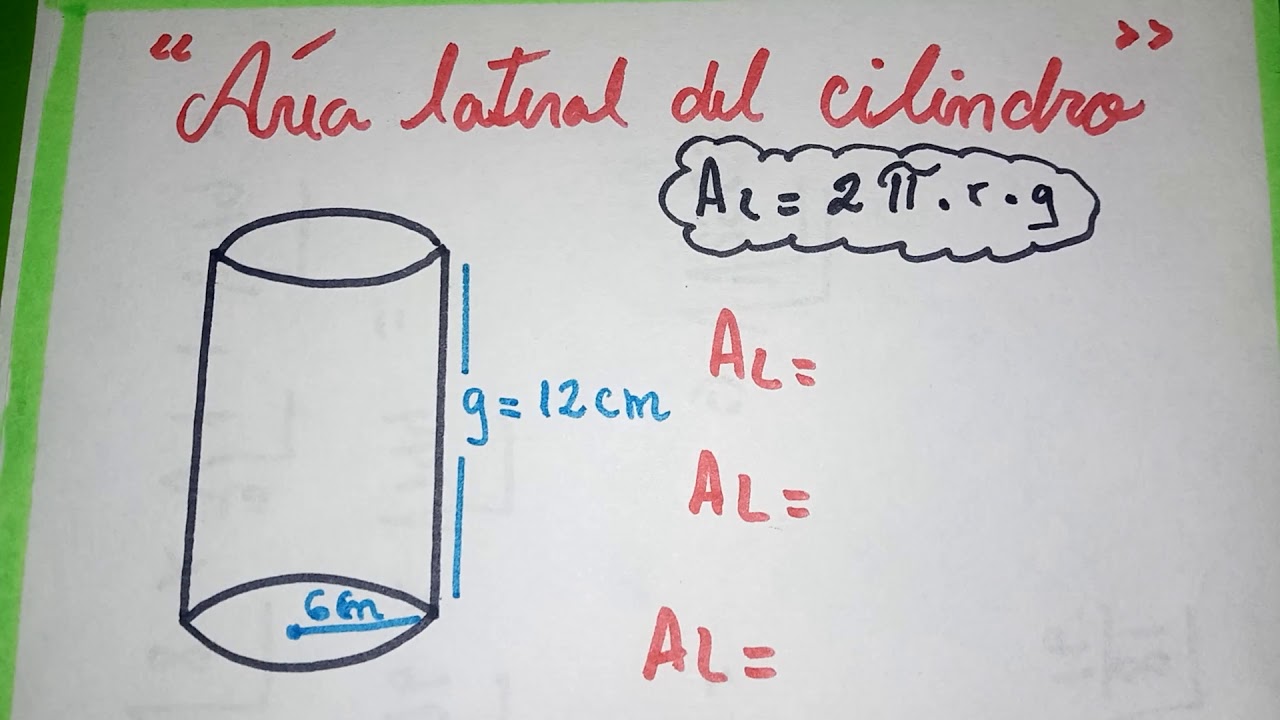 “Área lateral del cilindro”
AL = 2π.r.g
AL =
g = 12cm
AL =
6cm
AL =